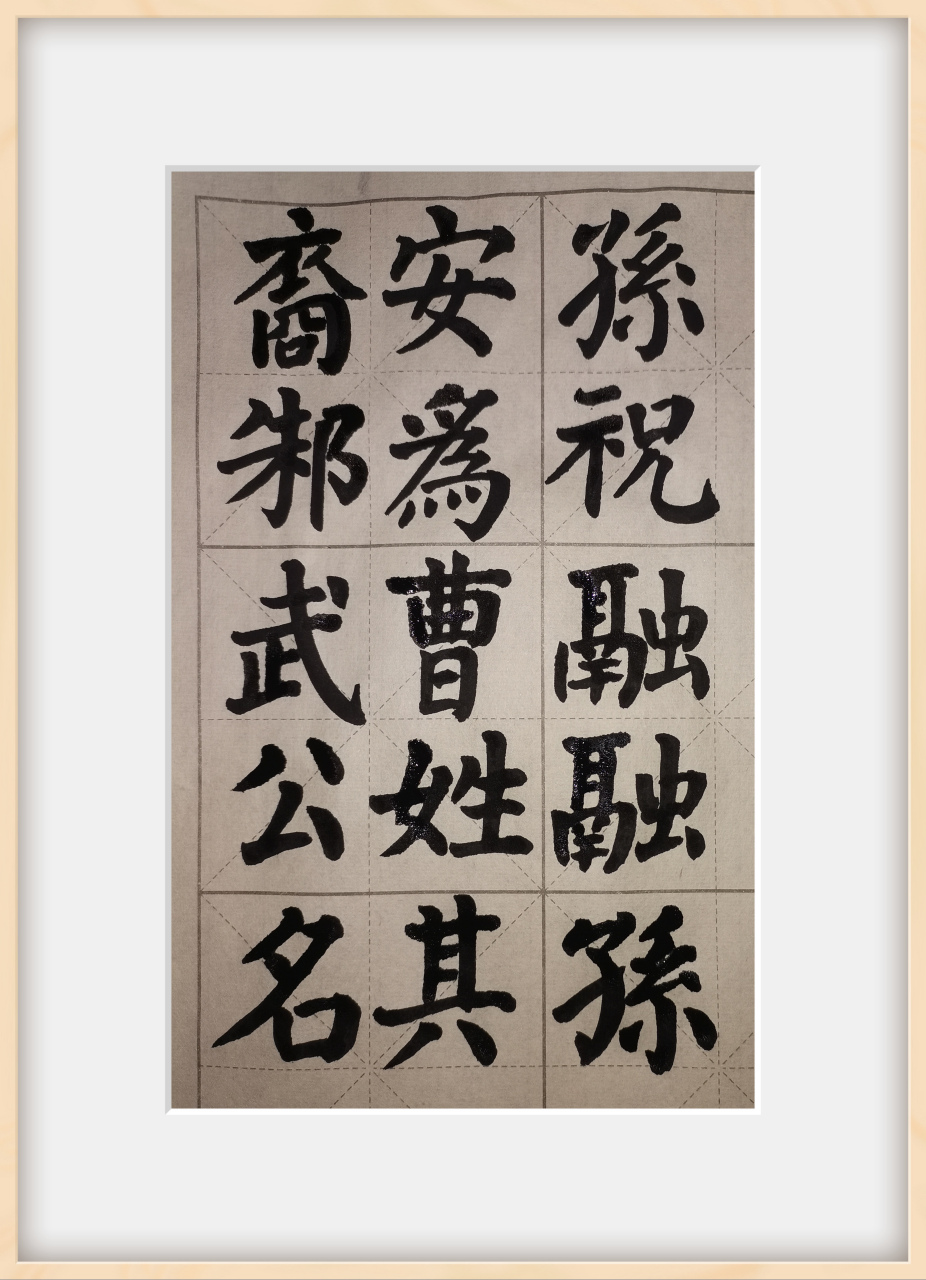 孫祝融融孫
安為曹姓其
裔邾武公名